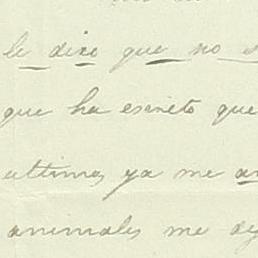 le dixo que no
que ha escrito que
ultimas ya me
animales me